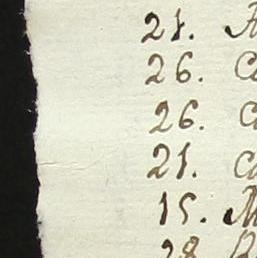 21. A
26. C
26. C
21. C
15. M
28 B